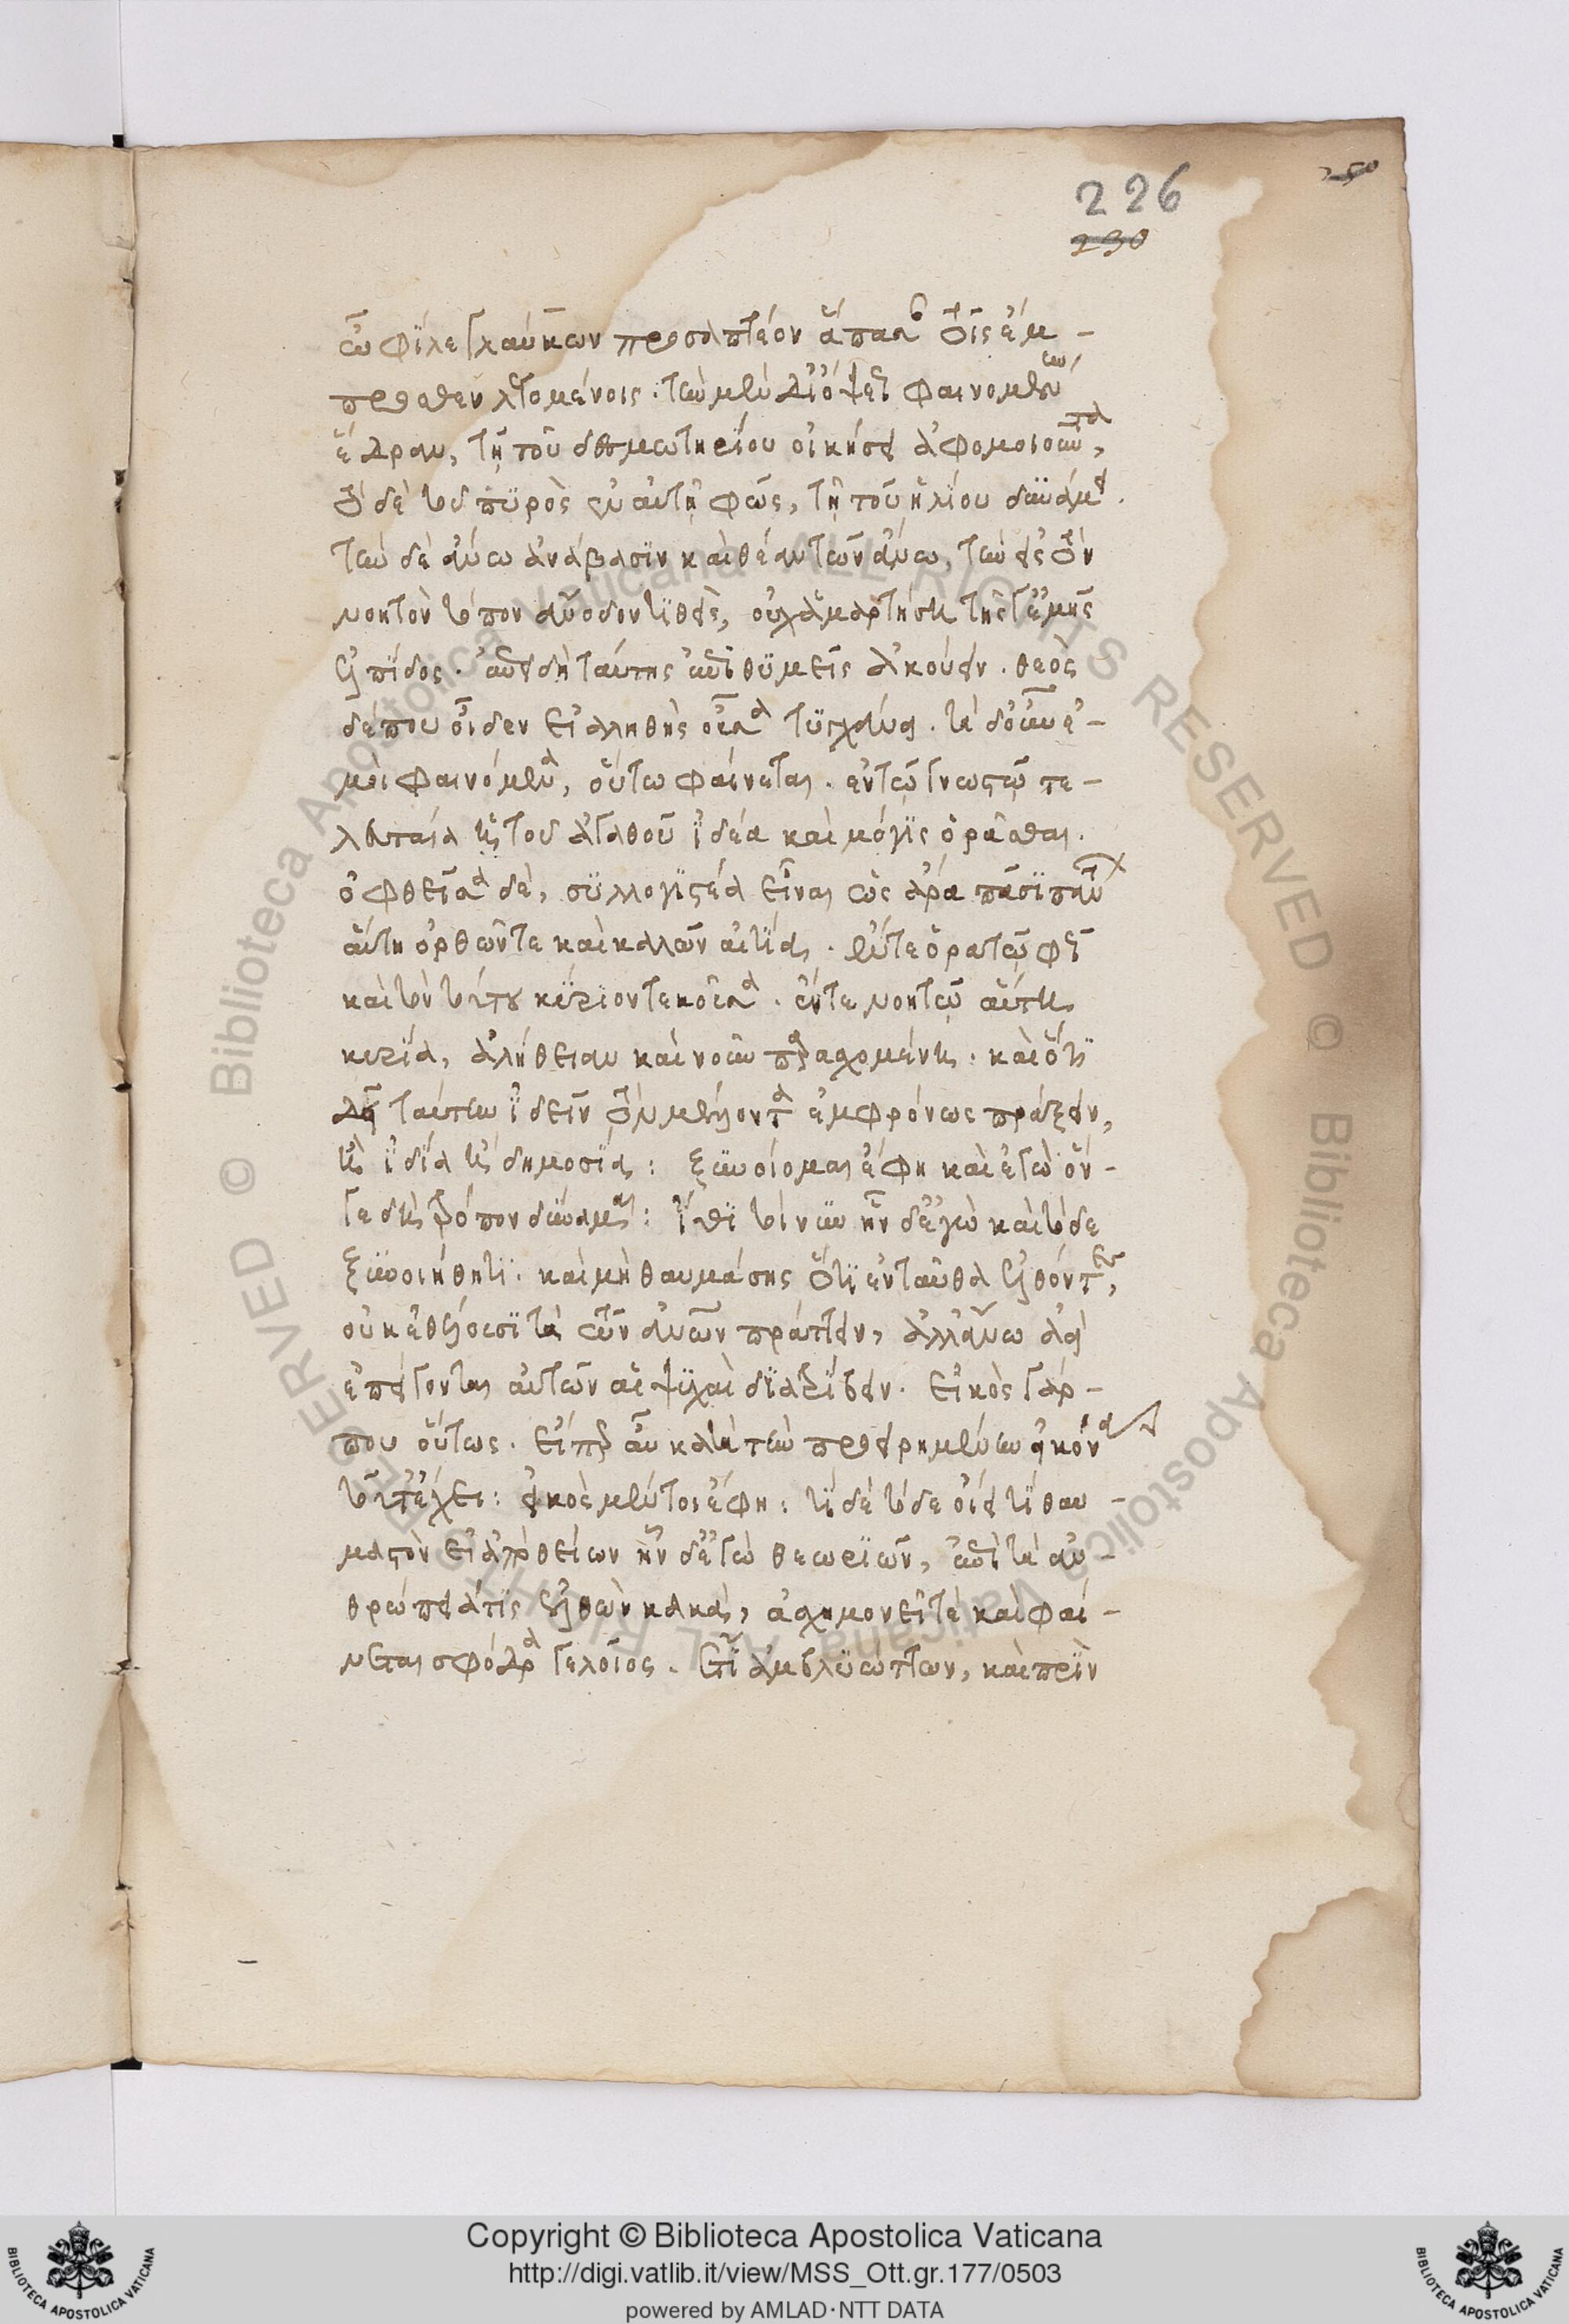 226
230
250
ὦ φίλε Γλαύκων προσαπτέον ἅπασαν τοῖς ἔμ-
προσθεν λεγομένοις. τὴν μὲν δι' ὄψεως φαινομένην
ἕδραν, τῇ τοῦ δεσμωτηρίου οἰκήσει ἀφομοιοῦντα,
τὸ δὲ τοῦ πυρὸς ἐν αὐτῇ φῶς, τῇ τοῦ ἡλίου δυνάμει.
τὴν δὲ ἄνω ἀνάβασιν καὶ θέαν τῶν ἄνω, τὴν εἰς τὸν
νοητὸν τόπον ἄνοδον τιθεὶς, οὐχ ἁμαρτήσῃ τῆς γ' ἐμῆς
ἐλπίδος. ἐπειδὴ ταύτης ἐπιθυμεῖς ἀκούειν. θεὸς
δέ που οἶδεν εἰ ἀληθὴς οὖσα τυγχάνει. τὰ δ' οὖν ἐ-
μοὶ φαινόμενα, οὕτω φαίνεται. ἐν τῷ γνωστῷ τε-
λευταία ἡ τοῦ ἀγαθοῦ ἰδέα καὶ μόγις ὁρᾶσθαι.
ὀφθεῖσα δὲ, συλλογιστέα εἶναι ὡς ἄρα πᾶσι πάντων
αὕτη ὀρθῶν τε καὶ καλῶν αἰτία. ἔν τε ὁρατῷ φῶς
καὶ τὸν τούτου κύριον τεκοῦσα. ἔν τε νοητῷ αὐτὴ
κυρία, ἀλήθειαν καὶ νοῦν παρασχομένη. καὶ ὅτι
δεῖ ταύτην ἰδεῖν τὸν μέλλοντα ἐμφρόνως πράξειν,
ἢ ἰδίᾳ ἢ δημοσίᾳ: ξυνοίομαι ἔφη καὶ ἐγὼ ὅν-
γε δὴ τρόπον δύναμαι: ἴθι τοίνυν ἦν δ' ἐγὼ καὶ τόδε
ξυνοιήθητι. καὶ μὴ θαυμάσῃς ὅτι ἐνταῦθα ἐλθόντες,
οὐκ ἐθέλουσι τὰ τῶν ἀνθρώπων πράττειν, ἀλλ' ἄνω ἀεὶ
ἐπείγονται αὐτῶν αἱ ψυχαὶ διατρίβειν. εἰκὸς γάρ-
που οὕτως. εἴπερ αὖ κατὰ τὴν προειρημένην εἰκόνα
τοῦτ' ἔχει: εἰκὸς μέντοι ἔφη: τί δὲ τόδε οἴει τι θαυ-
μαστὸν εἰ ἀπὸ θείων ἦν δ' ἐγὼ θεωριῶν, ἐπὶ τὰ ἀν-
θρώπειά τις ἐλθὼν κακὰ, ἀσχημονεῖ τε καὶ φαί-
νεται σφόδρα γελοῖος. ἔτι ἀμβλυώττων, καὶ πρὶν
© Biblioteca Apostolica Vaticana ALL RIGHTS RESERVED
Copyright © Biblioteca Apostolica Vaticana
http://digi.vatlib.it/view/MSS_Ott.gr.177/0503
powered by AMLAD·NTT DATA
BIBLIOTECA APOSTOLICA VATICANA
BIBLIOTECA APOSTOLICA VATICANA